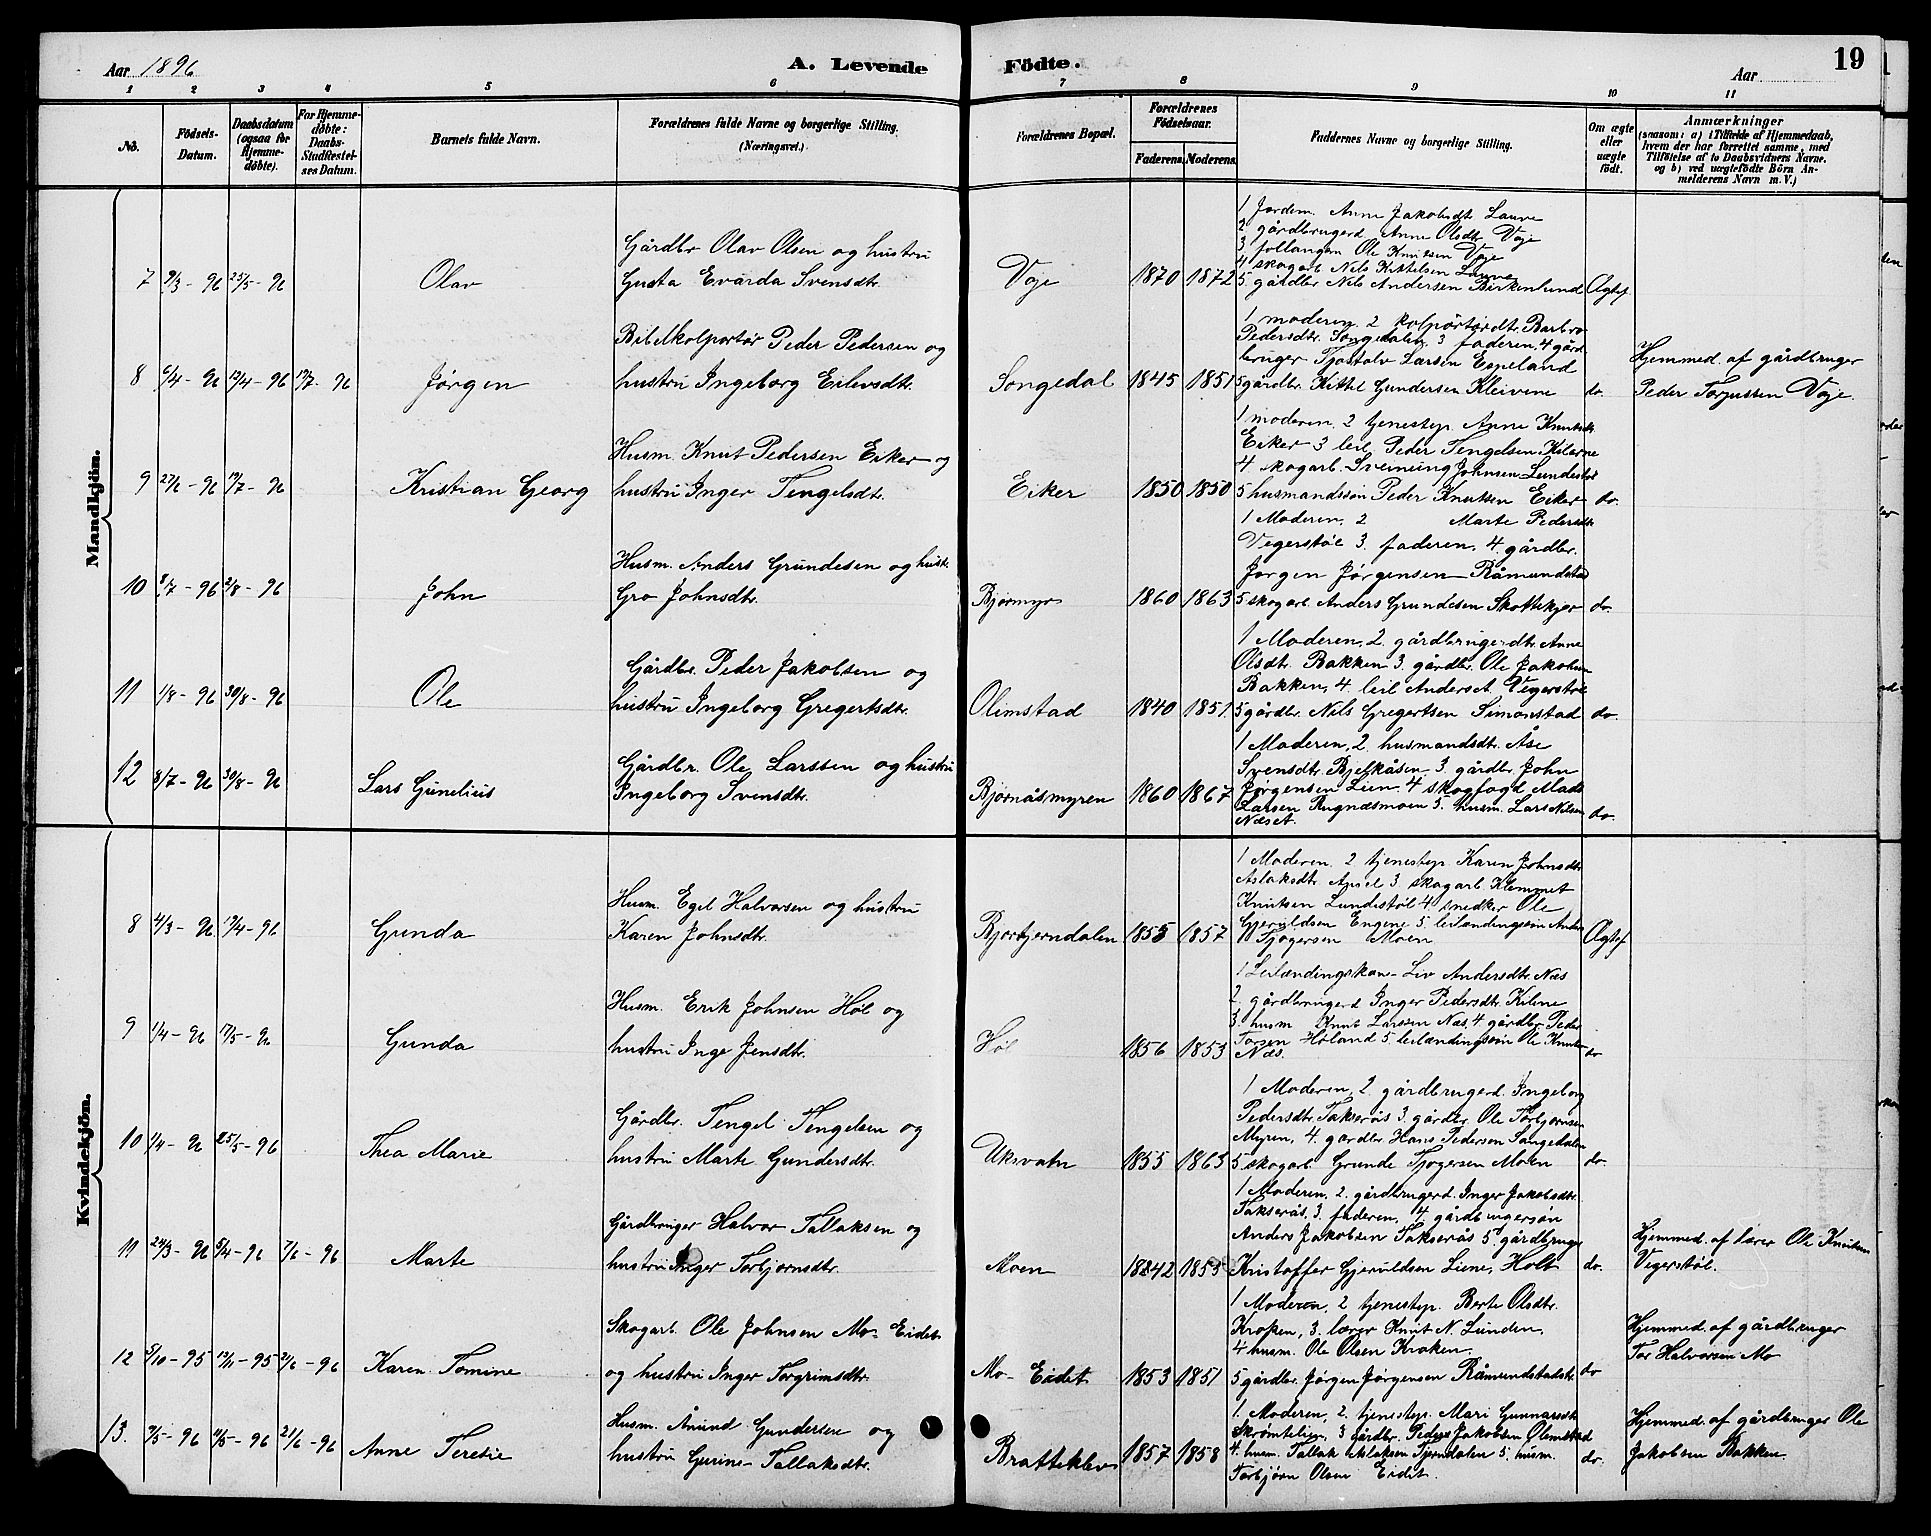 Aar 1896
A. Levende Födte.
Aar
19
1 2 3 4 5 6 7 8 9 10 11
No.
Födsels-Datum.
Daabsdatum (ogsaa for Hjemme-döbte).
For Hjemme-döbte: Daabs-Stadfæstel-ses Datum.
Barnets fulde Navn.
Forældrenes fulde Navne og borgerlige Stilling. (Næringsvei.)
Forældrenes Bopæl.
Forældrenes Födselsaar.
Faderens. Moderens.
Faddernes Navne og borgerlige Stilling.
Om ægte eller uægte födt.
Anmærkninger
(saasom: a) i Tilfælde af Hjemmedaab, hvem der har forrettet samme, med Tilföielse af to Daabsvidners Navne. og b) ved uægtefödte Börn An-melderens Navn m. V.)
Mandkjön.
7 9/3 - 96 25/5 - 96
Olav
Gårdbr Olav Olsen og hustru
Gusta Evarda Svensdtr.
Voje
1870 1872
1 Jordem. Anne Jakobsdt. Lauve
2 gårdbrugerd Anne Olsdtr. Voje
3 follangen Ole Knutsen Voje
4 skogarb Nils Kittelsen Lauve
5 gårdbr Nils Andersen Birkenlund
Ægtef.
8 6/4 - 96 13/4 - 96 17/7 - 96
Jørgen
Bibelkolportør Peder Pedersen og
hustru Ingeborg Eilevsdtr.
Songedal
1845 1851
1 moderen. 2 kolportørdtr. Barbro
Pedersdtr. Songedalen 3 faderen. 4 gård
bruger Tjostolv Larsen Espeland
5 gårdbr. Kittel Gundersen Kleivene
do.
Hjemmed. af gårdbruger
Peder Torjussen Voje.
9 17/7 - 96
Kristian Georg
Husm. Knut Pedersen Eiker og
hustru Inger Tengelsdtr.
Eiker
1850 1850
1 moderen, 2 tjenestep. Anne Knutsdt.
Eiker 3 leil. Peder Tengelsen Kilene
4 skogarb. Sveinung Johnsen Lundestøl
5 husmandssøn Peder Knutsen Eiker
do.
10 8/7 - 96 2/8 - 96
John
Husm. Anders Grundesen og hust.
Gro Johnsdtr.
Bjørmyr
1860 1863
1 Moderen, 2 Marte Pedersdtr
Vegerstøl 3. faderen, 4. gårdbr.
Jørgen Jørgensen Råmundstad
5 skogarb. Anders Grundesen Skottekjær
do.
11 1/8 - 96 30/8 - 96
Ole
Gårdbr. Peder Jakobsen og
hustru Ingeborg Gregertsdtr.
Olimstad
1840 1851.
1 Moderen, 2. gårdbrugerdtr. Anne
Olsdtr. Bakken 3. gårdbr. Ole Jakobsen
Bakken, 4. leil Anders A. Vegerstøl
5 gårdbr. Nils Gregertsen Simonstad
do.
12 8/7 - 96 30/8 - 96
Lars Gunelius
Gårdbr. Ole Larssen og hustru
Ingeborg Svensdtr.
Bjørnåsmyren
1860 1867
1 Moderen, 2. husmandsdtr. Åse
Svensdtr. Bjelkåsen 3. gårdbr. John
Jørgensen Lien. 4 skogfogd Mads
Larsen Rugnæsmoen 5. husm. Lars Nilsen
Næset.
do.
Kvindekjön.
8 4/3 - 96 17/4 - 96
Gunda
Husm. Egel Halvorsen og hustru
Karen Johnsdtr.
Bjorbjerndalen
1855 1857
1 Moderen. 2 tjenestep. Karen Johnsdtr
Aslaksdtr. Apsel 3. skogarb. Klemmet
Knutsen Lundestøl 4 snedker Ole
Gjeruldsen Engene 5. leilændingssøn Anders
Tjøgersen Moen
Ægtef
9 1/4 - 96 17/5 - 96
Gunda
Husm. Erik Johnsen Høl og
hustru Inge Jensdtr.
Høl
1856 1853
1 Leilændingskone Liv Andersdtr. Næs
2. gårdbrugerd Inger Pedersdtr. Kilene
3. husm Knut Larssen Næs. 4 gårdbr. Peder
Torsen Høland 5. leilændingssøn Ole Knutsen
Næs.
do
10 1/4 - 96 25/5 - 96
Thea Marie
Gårdbr. Tengel Tengelsen og
hustru Marte Gundersdtr.
Uksvatn
1855 1863
1 Moderen, 2 gårdbrugerd. Ingeborg
Pedersdtr. Takserås 3. gårdbr. Ole Torbjørnsen
Myren, 4. gårdbr. Hans Pedersen Songedalen
5 skogarb. Grunde Tjøgersen Moen
do.
11 24/3 - 96 5/4 - 96 7/6 - 96
Marte
Gårdbruger Halvor Tallaksen og
hustru Inger Torbjørnsdtr.
Moen
18842 1855
1 Moderen, 2. gårdbrugerd. Inger Jakobsdtr.
Takserås, 3. faderen, 4 gårdbrugersøn
Anders Jakobsen Takserås 5. gårdbruger
Kristoffer Gjeruldsen Liene, Holt
do.
Hjemmed. af lærer Ole Knutsen
Vegerstøl.
12 5/10 - 95 17/11 - 95 2/6 - 96
Karen Tomine
Skogarb. Ole Johnsen Mo-Eidet
og hustru Inger Torgrimsdtr.
Mo-Eidet
1853 1851
1 Moderen, 2 tjenestep. Berte Olsdtr.
Kroken, 3. lærer Knut N. Lunden.
4 husm. Ole Olsen Kroken.
5 gårdbr. Jørgen Jørgensen Råmundstadstr.
do
Hjemmed. af gårdbruger
Tor Halvorsen Mo
13. 3/5 - 96 11/5 - 96 21/6 - 96
Anne Teresie
Husm. Ånund Gundersen og
hustru Gurine Tallaksdtr.
Brattekleiv
1857 1858
1. Moderen, 2. tjenestep. Mari Gunnarsdtr.
Skrømtelien, 3 gårdbr. Peder Jakobsen Olimstad
4. husm. Tallak Aslaksen Tjendalen 5. husm.
Torbjørn Olsen Eidet.
do.
Hjemmed. af gårdbruger Ole
Jakobsen Bakken.